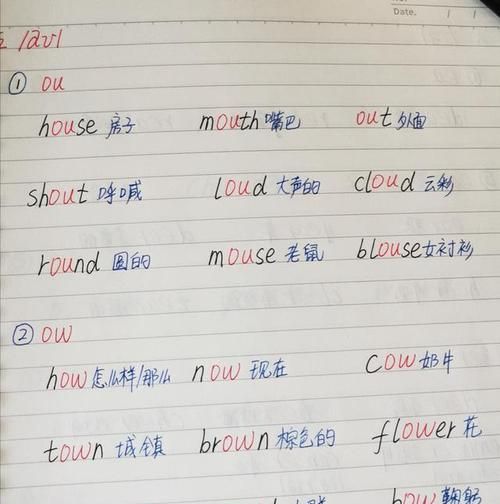 Date. / /
/aʊ/
① ou
house 房子 mouth 嘴巴 out 外面
shout 呼喊 loud 大声的 cloud 云彩
round 圆的 mouse 老鼠 blouse 女衬衫
② ow
how 怎么样/那么 now 现在 cow 奶牛
town 城镇 brown 棕色的 flower 花
bow 鞠躬